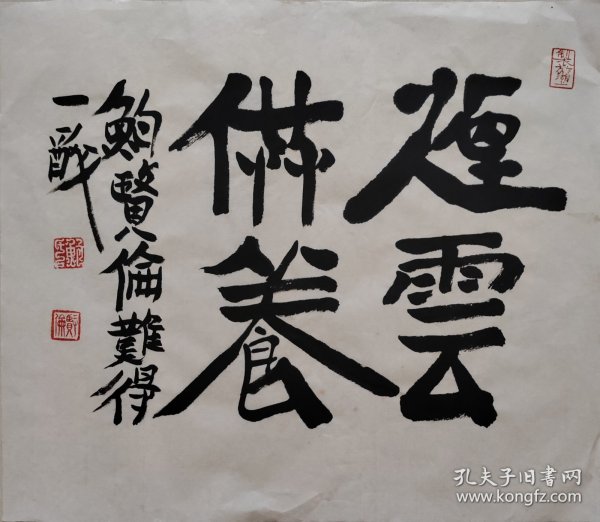 煙雲
供養
鮑賢倫難得
一戲
孔夫子旧书网
www.kongfz.com